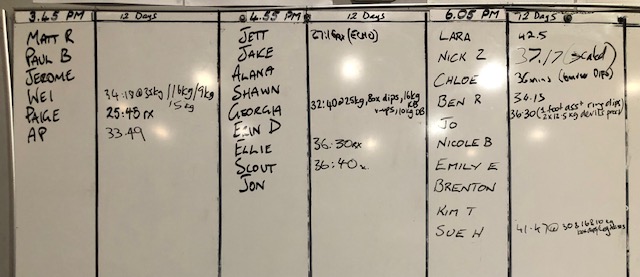 3.45 PM 12 Days
MATT R
PAUL B
JEROME
WEI 34:18@35kg/16kg/9kg
15kg
PAIGE 25:45 RX
AP 33.49
4.55 PM 12 Days
JETT (ECHO)
JAKE
ALANA
SHAWN
GEORGIA 32:40@25kg, Box dips, 16kg KB
v-ups, 10kg DB
ERIN D
ELLIE 36:30 RX
SCOUT 36:40
JON
6.05 PM 12 Days
LARA 42.5
NICK Z 37.17 (scaled)
CHLOE 36mins Dips)
BEN R
JO 36:30 foot asst ring dips
2x12.5kg devils press
NICOLE B
EMILY E
BRENTON
KIM T
SUE H 41.47@